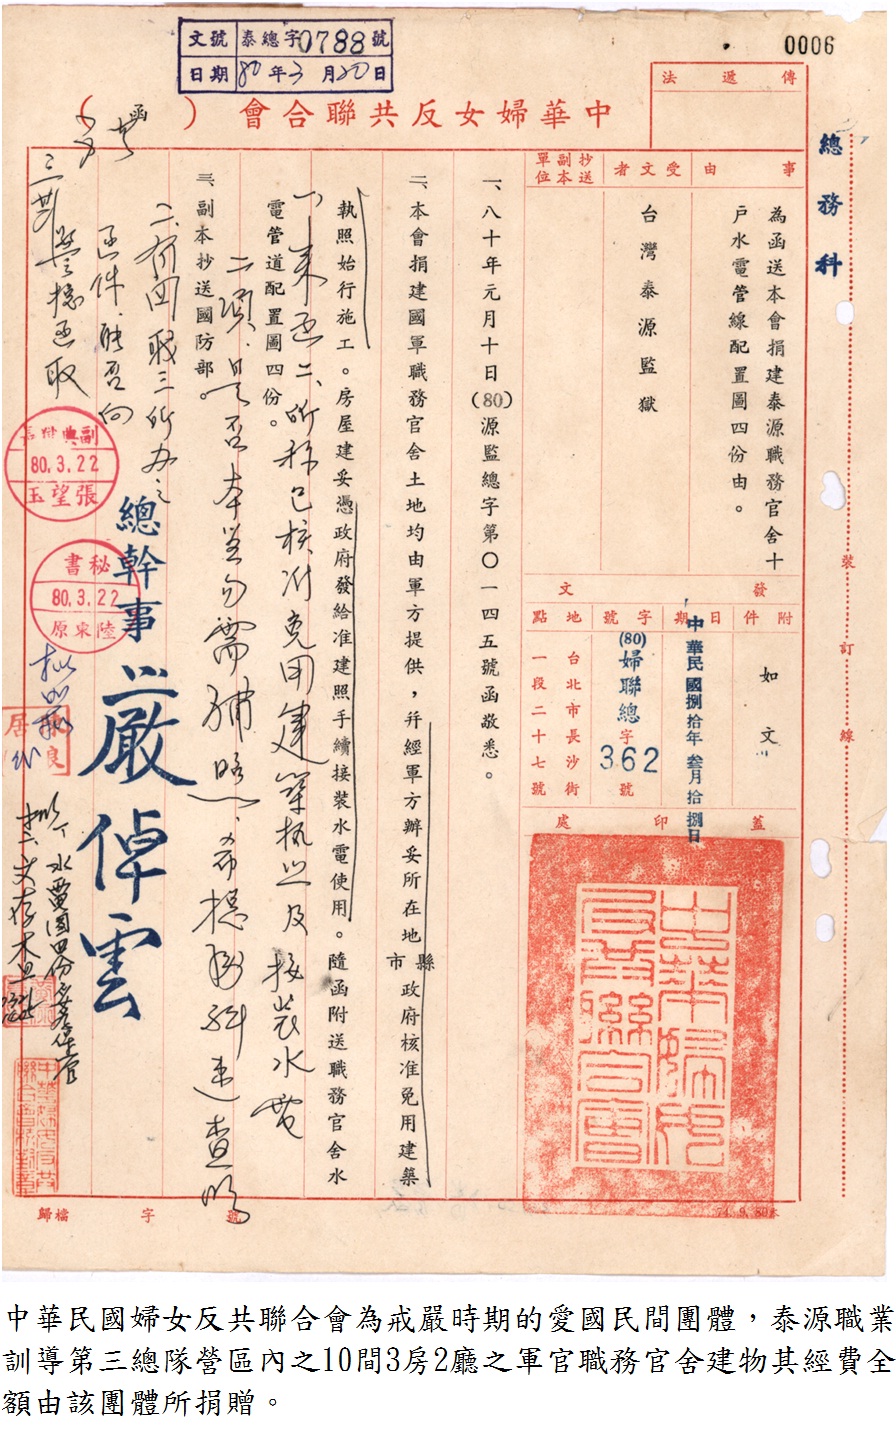 文號 泰總字0788號
日期 80年3月20日
0006
總務科
中華婦女反共聯合會（函）
傳遞法
事由
為函送本會捐建泰源職務官舍十
戶水電管線配置圖四份由。
受文者
台灣泰源監獄
抄送副本單位
發文
附件
如文
日期
中華民國捌拾年叁月拾捌日
字號
(80)婦聯總字362號
地點
台北市長沙街
一段二十七號
蓋印處
一、八十年元月十日(80)源監總字第〇一四五號函敬悉。
二、本會捐建國軍職務官舍土地均由軍方提供，并經軍方辦妥所在地縣市政府核准免用建築
執照始行施工。房屋建妥憑政府發給准建照手續接裝水電使用。隨函附送職務官舍水
電管道配置圖四份。
三、副本抄送國防部。
總幹事 嚴倬雲
一、來函二、所稱已核准免用建築執照及接裝水電
二項，是否本監勿需補照，希總務科速查明
二、附圖
80.3.22
張望玉
秘書
80.3.22
陸東原
裝訂線
歸檔 字 號
中華民國婦女反共聯合會為戒嚴時期的愛國民間團體，泰源職業
訓導第三總隊營區內之10間3房2廳之軍官職務官舍建物其經費全
額由該團體所捐贈。